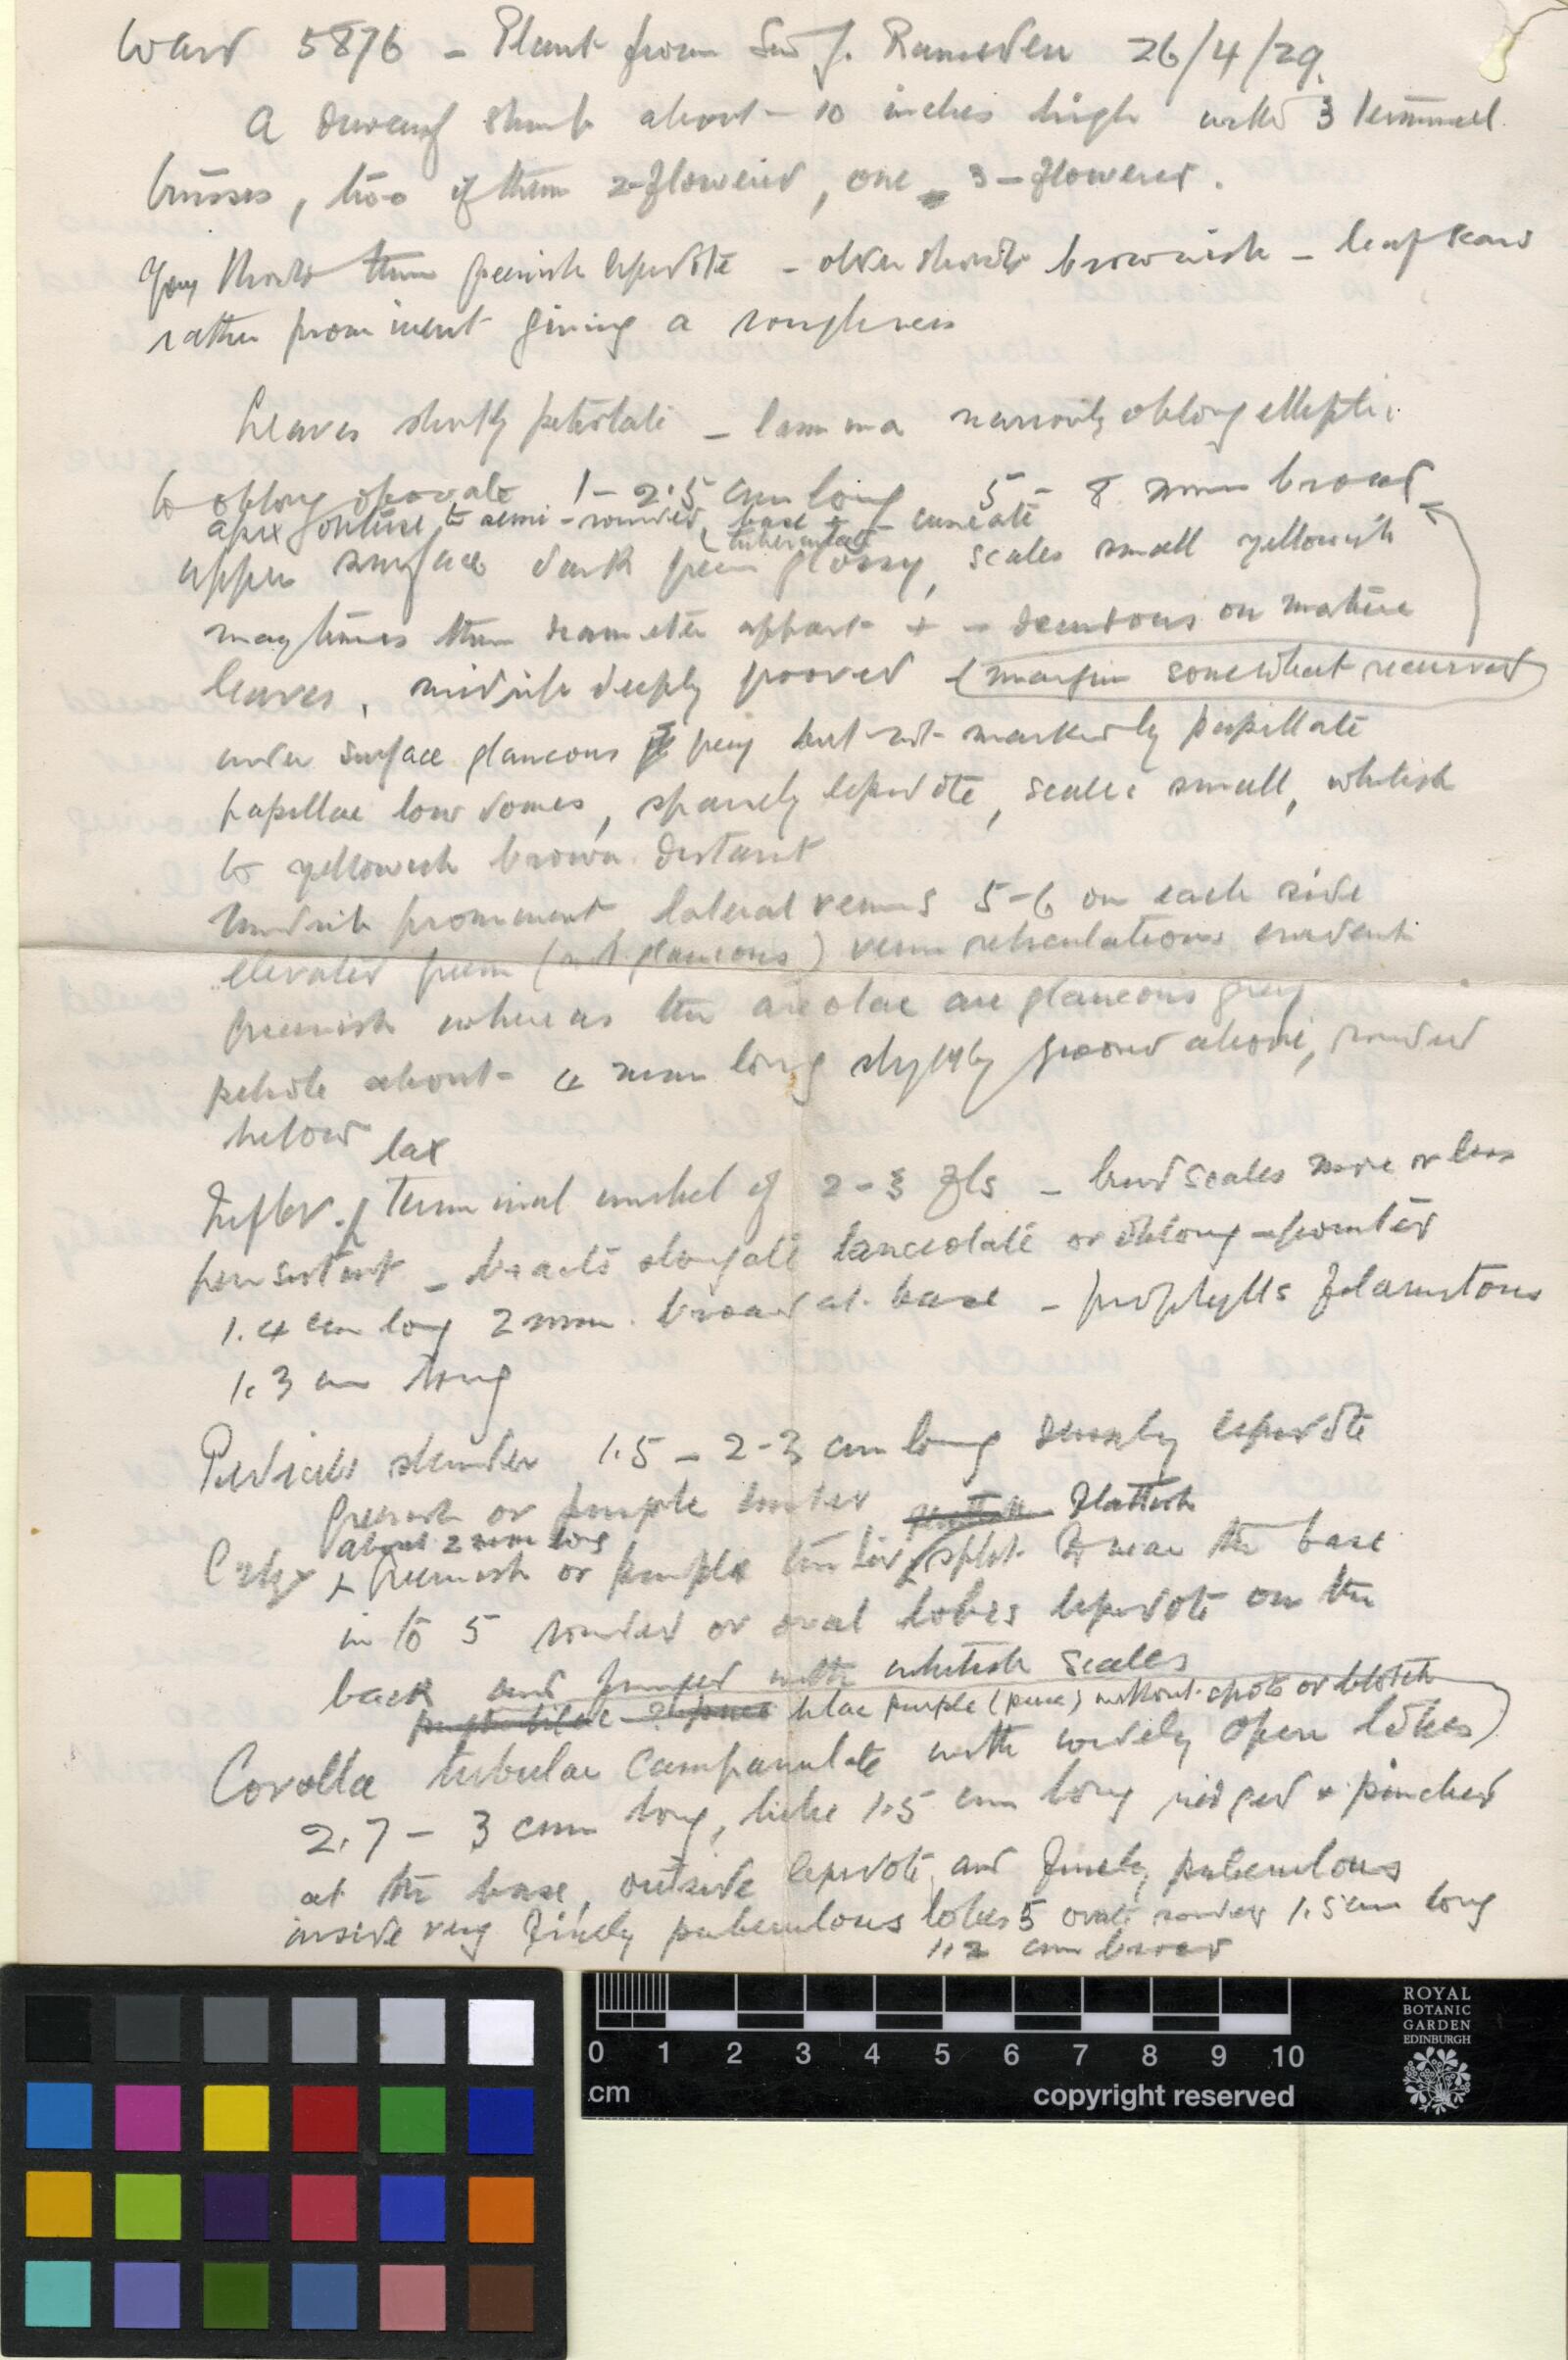 Ward 5876 - Plant from Sir J. Ramsden 26/4/29.
A dwarf shrub about 10 inches high with 3 terminal
trusses, two of them 2-flowered, one 3-flowered.
Young shoots thin greenish lepidote - older shoots brownish - leaf scars
rather prominent giving a roughness
Leaves shortly petiolate - lamina narrowly oblong elliptic
to oblong obovate 1-2.5 cm long 5-8 mm broad
apex obtuse to semi-rounded, base ± cuneate
upper surface dark green glossy, scales small yellowish
many times their diameter appart + - deciduous on mature
leaves, midrib deeply grooved (margin somewhat recurved)
under surface glaucous grey but not markedly papillate
papillae low domes, sparsely lepidote, scales small, whitish
to yellowish brown distant
midrib prominent, lateral veins 5-6 on each side
elevated green (not glaucous) vein reticulations evident
greenish whereas the areolae are glaucous grey
petiole about 4 mm long slightly grooved above, rounded
below
lax
Inflor. terminal umbel of 2-3 fls - bud scales more or less
persistent - bracts elongate lanceolate or oblong-pointed
1.4 cm long 2 mm broad at base - prophylls filamitous
1.3 cm long
Pedicels slender 1.5 - 2-3 cm long densely lepidote
greenish or purple tinted flattish
about 2 mm long
Calyx greenish or purple tinted split to near the base
in to 5 rounded or oval lobes lepidote on the
back and fringed with whitish scales
lilac purple (puce) without spots or blotch
Corolla tubular campanulate with widely open lobes
2.7 - 3 cm long, tube 1.5 cm long ridged & pinched
at the base, outside lepidote and finely puberulous
inside very finely puberulous lobes 5 ovate rounded 1.5 cm long
1.2 cm broad
0 1 2 3 4 5 6 7 8 9 10
cm copyright reserved
ROYAL
BOTANIC
GARDEN
EDINBURGH